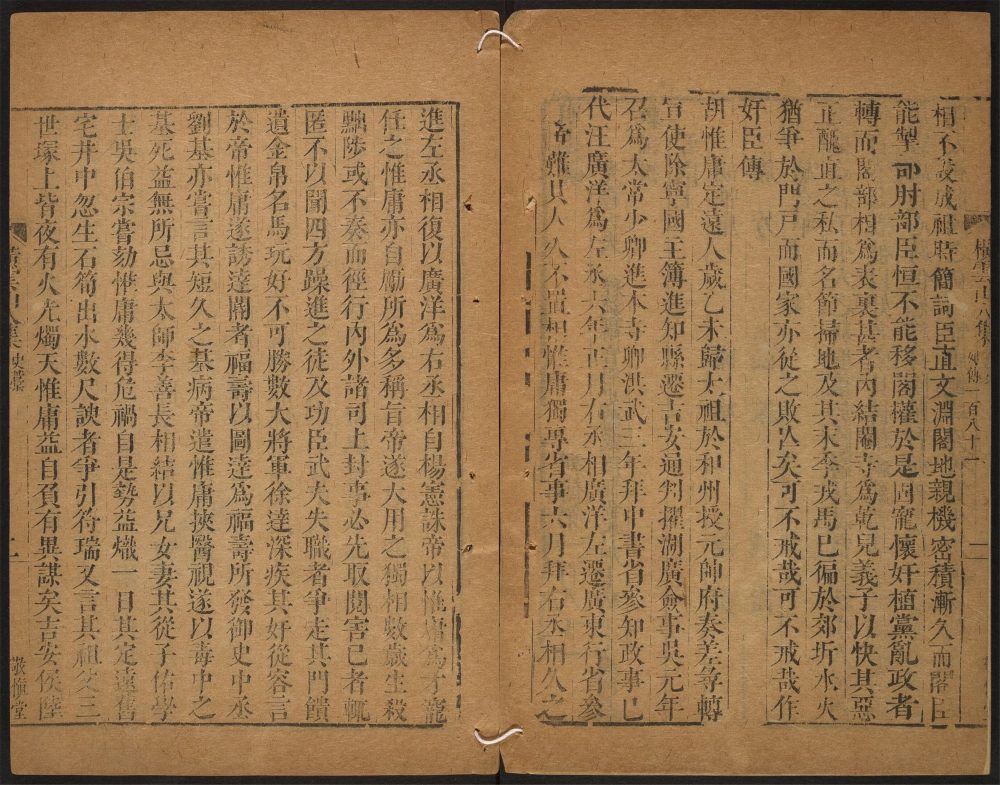 相不設成祖時簡詞臣直文淵閣地親機密積漸久而閣臣
能掣部肘部臣恒不能移閣權於是固寵懷奸植黨亂政者
轉而閣部相爲表裏甚者內結閹寺爲乾兒義子以快其惡
正醜直之私而名節掃地及其末季戎馬已徧於郊圻水火
猶爭於門戸而國家亦從之敗亡矣可不戒哉可不戒哉作
奸臣傳
胡惟庸定遠人歲乙未歸太祖於和州授元帥府奏差尋轉
宣使除寧國主簿進知縣遷吉安通判擢湖廣僉事吳元年
召爲太常少卿進本寺卿洪武三年拜中書省參知政事已
代汪廣洋爲左丞六年正月右丞相廣洋左遷廣東行省參
帝難其人久不置相惟庸獨專省事六月拜右丞相久之
列傳 百八十一
進左丞相復以廣洋爲右丞相自楊憲誅帝以惟庸爲才寵
任之惟庸亦自勵所爲多稱旨帝遂大用之獨相數歲生殺
黜陟或不奏而徑行內外諸司上封事必先取閱害己者輒
匿不以聞四方躁進之徒及功臣武夫失職者爭走其門饋
遺金帛名馬玩好不可勝數大將軍徐達深疾其奸從容言
於帝惟庸遂誘達閽者福壽以圖達爲福壽所發御史中丞
劉基亦嘗言其短久之基病帝遣惟庸挾醫視遂以毒中之
基死益無所忌與太師李善長相結以兄女妻其從子佑學
士吳伯宗嘗劾惟庸幾得危禍自是勢益熾一日其定遠舊
宅井中忽生石筍出水數尺諛者爭引符瑞又言其祖父三
世塚上皆夜有火光燭天惟庸益自負有異謀矣吉安侯陸
二
敬愼堂